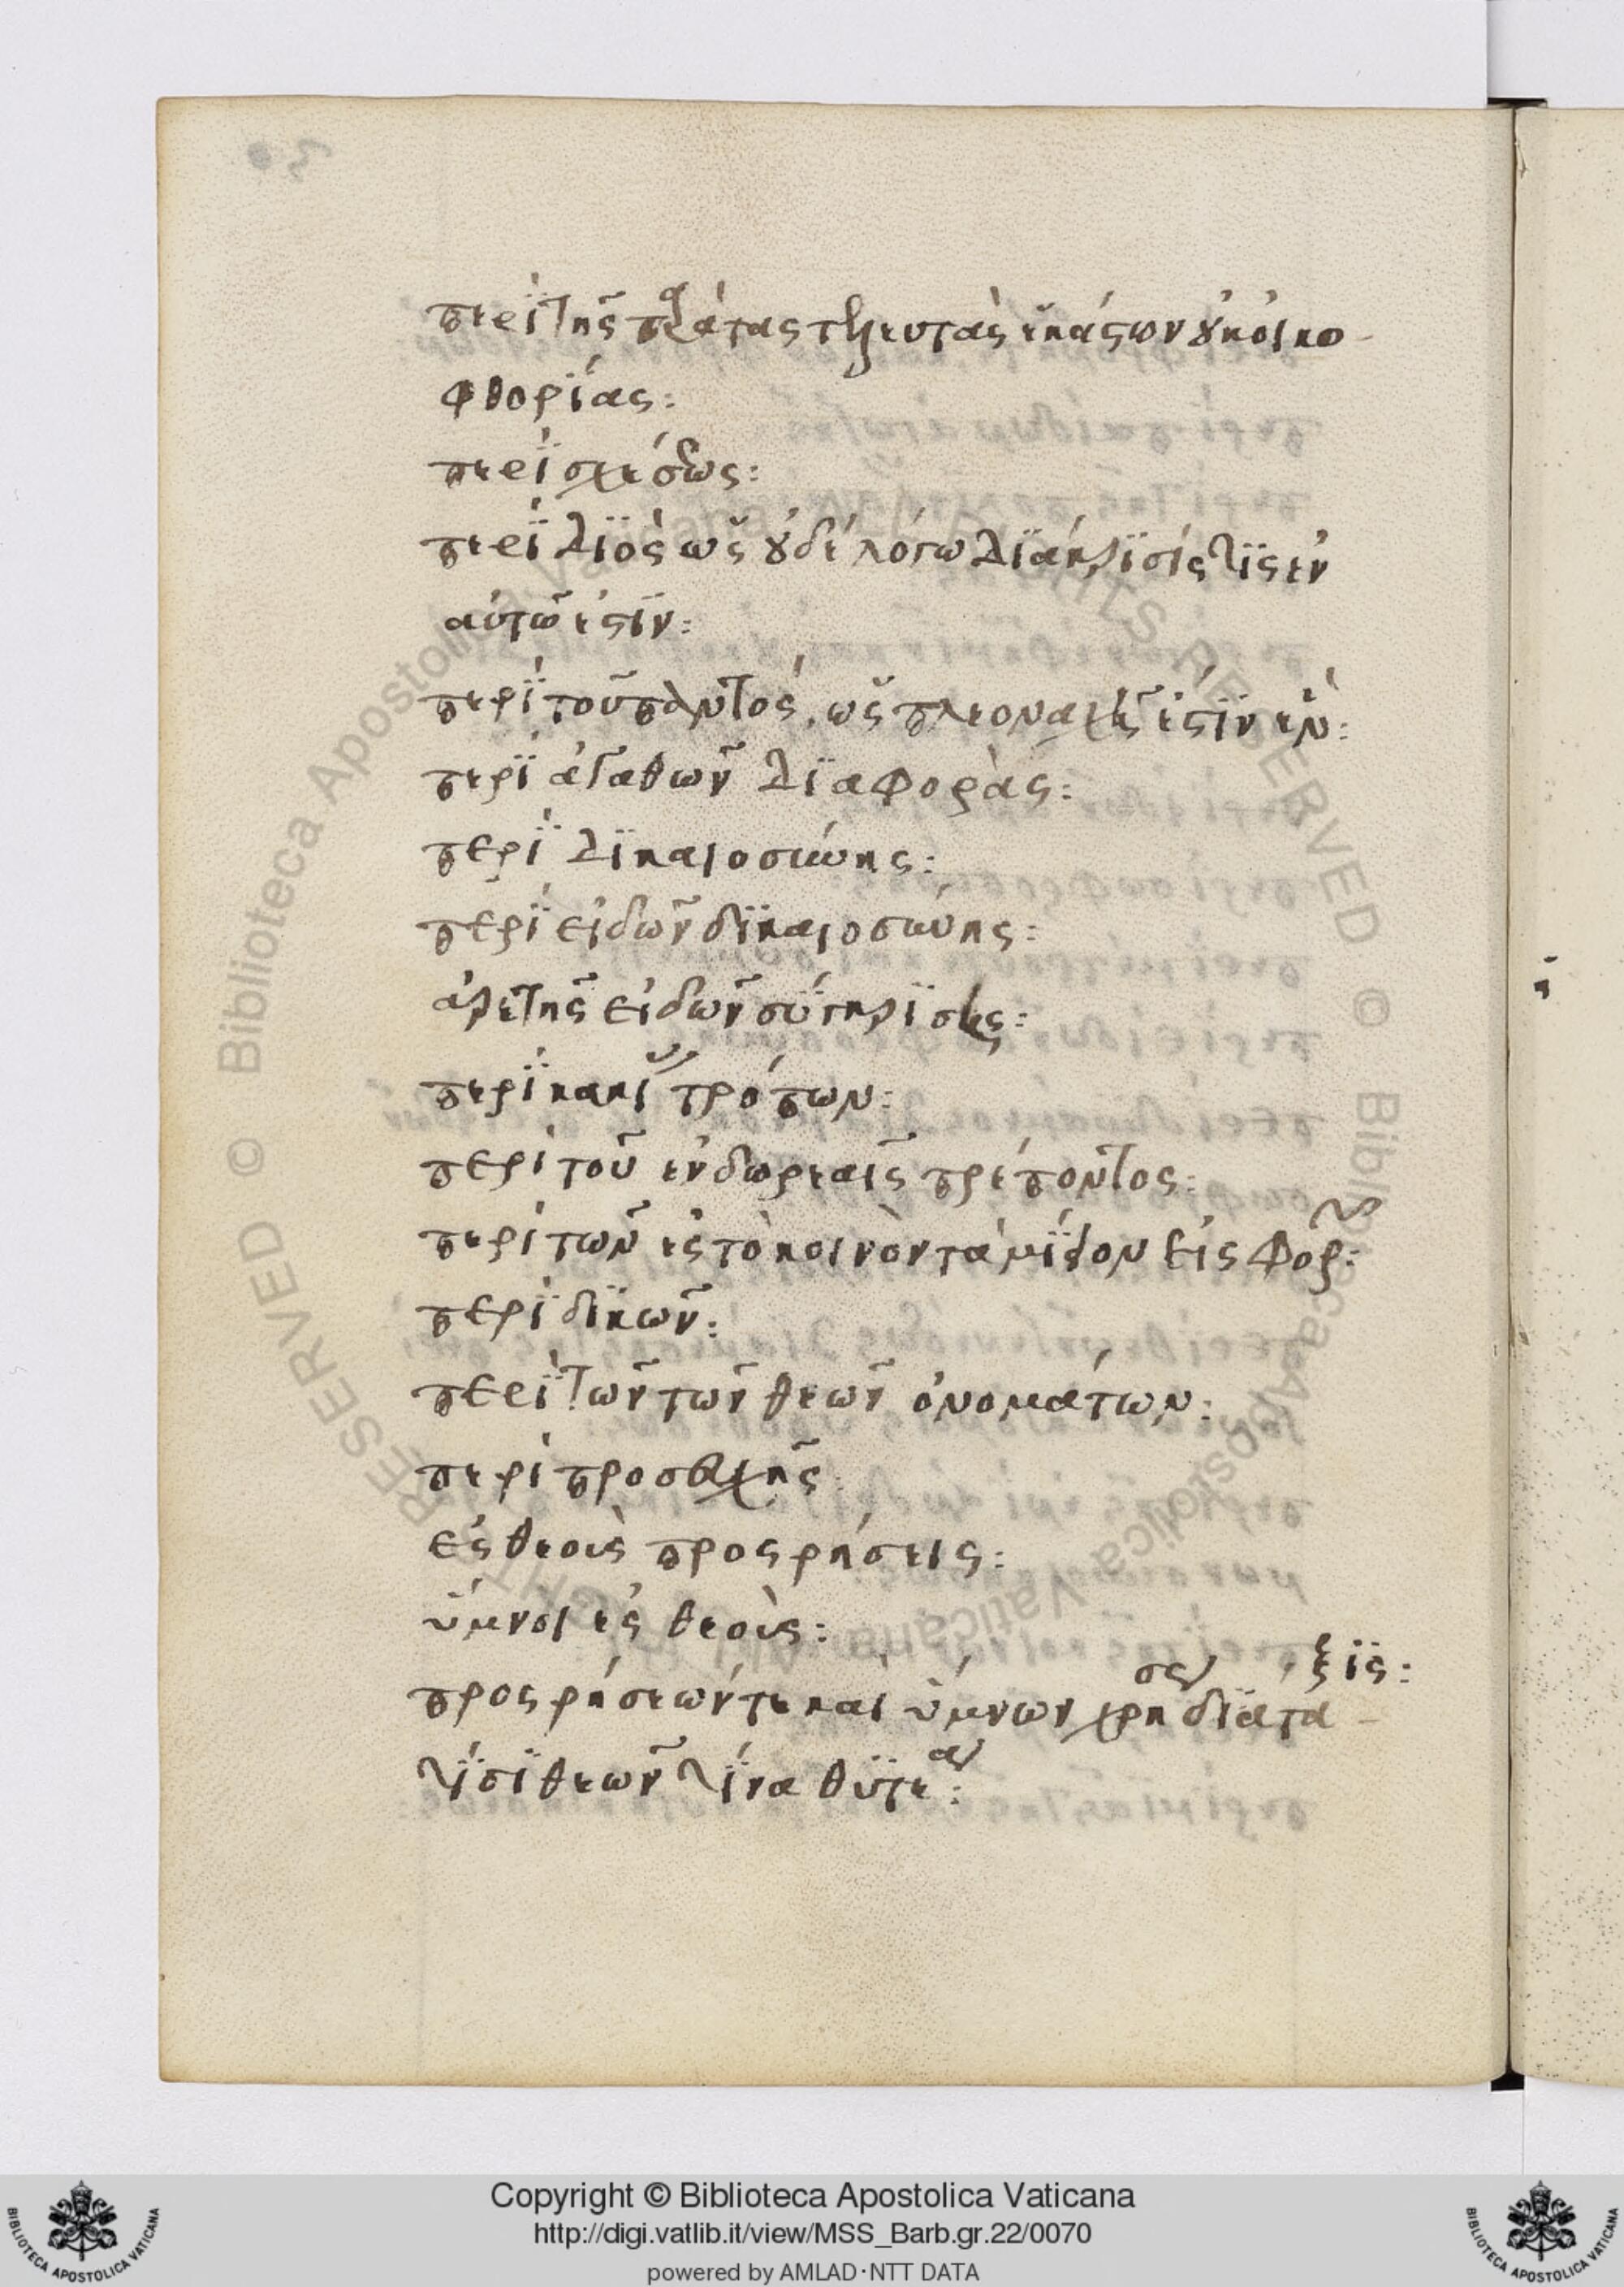 περὶ τῆς παρὰ τὰς τελευτὰς ἑκάστων οὐκ οἰκο
φθορίας:
περὶ σχέσεως:
περὶ Διὸς ὡς οὐδὲ λόγω διάκρισίς τίς ἐν
αὐτῶ ἐστὶν:
περὶ τοῦ παντὸς, ὡς πλεοναχῆ ἐστὶν ἓν:
περὶ ἀγαθῶν διαφορὰς:
περὶ δικαιοσύνης:
περὶ εἰδῶν δικαιοσύνης:
ἀρετῆς εἰδῶν σύγκρισις:
περὶ κακῶν τρόπων:
περὶ τοῦ ἐν δωρεαῖς πρέποντος:
περὶ τῶν ἐς τὸ κοινὸν ταμίειον εἰσφορῶν:
περὶ δικῶν:
περὶ τῶν τῶν θεῶν ὀνομάτων:
περὶ προσευχῆς
ἐς θεοὺς προσρήσεις:
ὕμνοι ἐς θεοὺς:
προσρήσεών τε καὶ ὕμνων χρήσεως διάταξις:
τίσι θεῶν τίνα θύτεα:
Copyright © Biblioteca Apostolica Vaticana
http://digi.vatlib.it/view/MSS_Barb.gr.22/0070
powered by AMLAD·NTT DATA
BIBLIOTECA APOSTOLICA VATICANA
BIBLIOTECA APOSTOLICA VATICANA